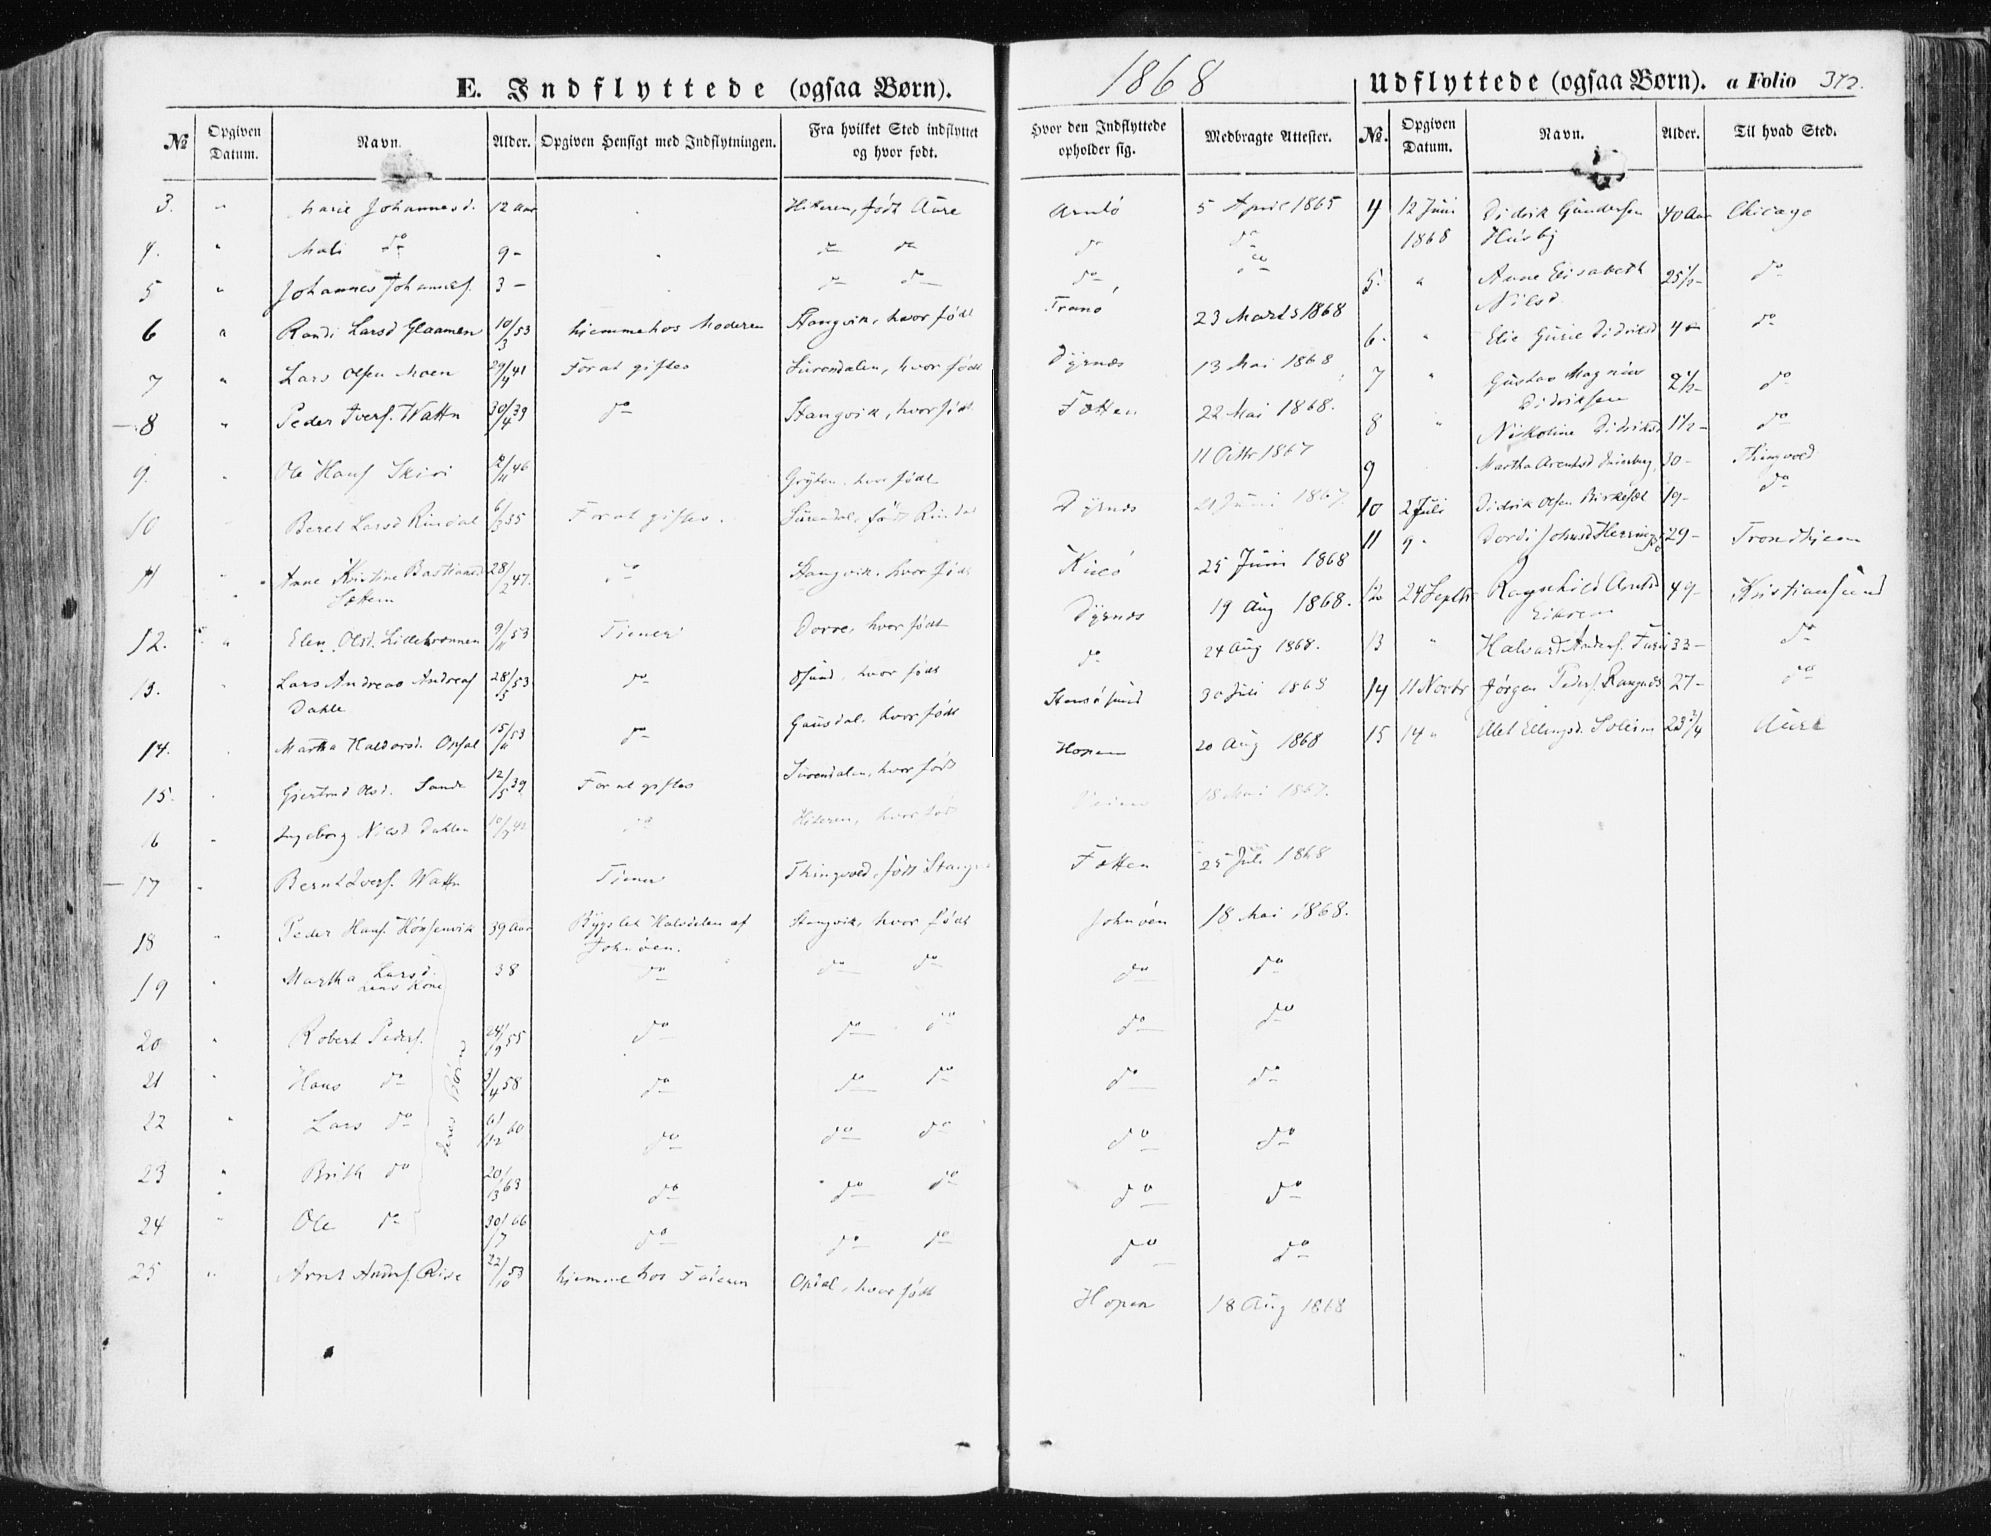 E. Indflyttede (ogsaa Børn).
1868
Udflyttede (ogsaa Børn). a Folio 372.
№ Opgiven Datum. Navn. Alder. Opgiven Hensigt med Indflytningen. Fra hvilket Sted indflyttet og hvor født. Hvor den Indflyttede opholder sig. Medbragte Attester.
3. " Marie Johannesd. 12 Aar " Hiteren, født Aure Arntö 5 April 1865
4. " Mali do 9 - " do do do do
5 " Johannes Johannesf. 3 - do do do do
6 " Randi Larsd Glaamen 10/3 53 hjemme hos Moderen Stangvik, hvor født Tranö 23 Marts 1868
7 " Lars Olsen Moen 29/4 41 For at giftes Surendalen, hvor født Dyrnæs 13 Mai 1868
8 " Peder Iversf. Wattn 30/4 39 do Stangvik, hvor født Fætten 22 Mai 1868.
9. " Ole Hansf Skiri /11 46 Gryten, hvor født 11 Octbr 1867
10 Beret Larsd Rindal 6/3 35 For at giftes. Surendal, født Rindal Dyrnæs 21 Juni 1867
11 " Anne Kristine Bastiansd Sættem 28/2 47. do Stangvik, hvor født Kueö 25 Juni 1868
12. " Elen Olsd. Lillebrønnen 9/11 53 Tiener Dovre, hvor født Dyrnæs 19 Aug 1868.
13. " Lars Andreas Andreasf Dahle 28/5 53 do Øsund, hvor født do 24 Aug 1868.
14. Martha Haldorsd. Opsal 15/11 53 do Gausdal, hvor født Stensösund 30 Juli 1868
15. Gjertrud Olsd. Sande 12/5 39 For at giftes Surendalen, hvor født Hopen 20 Aug 1868
16 " Ingeborg Nilsd Dahlen 10/ 42 do Hiteren, hvor født 18 Mai 1867.
17 " Bernt Iversf. Wattn Tiener Thingvold, født Stangv Fætten 25 Juli 1868
18 " Peder Hansf. Hönsenvik 39 Aar Bygslet Halvdelen af Johnøen. Stangvik, hvor født Johnøen 18 Mai 1868.
19 " Martha Larsd. hans Kone 38 do do do do do
20 " Robert Pedersf. 24/9 55 do do do do do
deres Børn
21 " Hans do 3/4 58 do do do do do
22 " Lars do 6/12 60 do do do do do
23 " Brith do 20/ 63 do do do do do
24 " Ole do 30/7 66 do do do do do
25 " Arnt Andersf. Rise 22/10 53 hjemme hos Faderen Opdal, hvor født Hopen 18 Aug 1868
№. Opgiven Datum. Navn. Alder. Til hvad Sted.
4 12 Juni 1868 Didrik Gundersen Husby 40 Aar Chicago
5. " Anne Elisabeth Nilsd. 25½- do
6. " Elie Gurie Didriksd 4- do
7 " Gustav Magnus Didriksen 2½- do
8 " Nikoline Didriksd 1½- do
9 Martha Arentsd 30- Thingvold
10 2 Juli Didrik Olsen Birkesæt 19- do
11 9 " Dordi Johnsd 29- Trondhjem
12 24 Septbr Ragnhild Arntsd 49- Kristiansund
13 " Halvard Andersf. 33- do
14 11 Novbr Jörgen Pedersf. 27- do
15 14 " Alet Ellingsd. Soleim 23¾ Aure